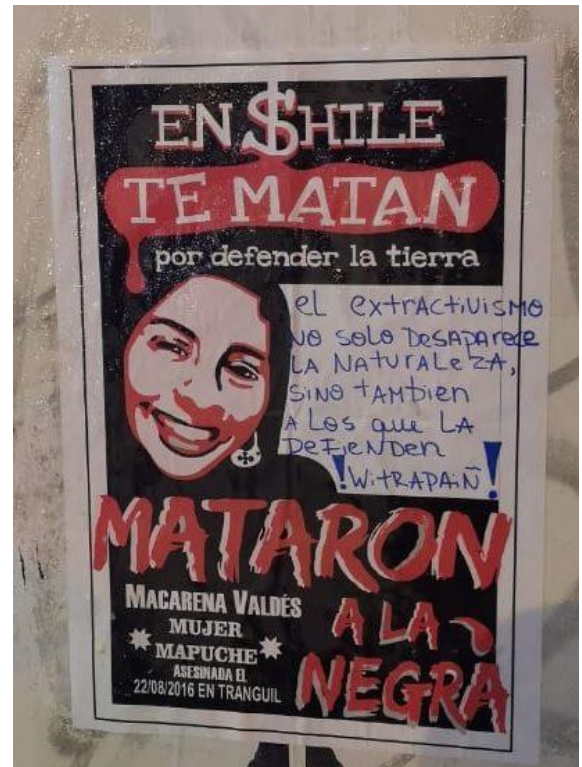 EN $HILE
TE MATAN
por defender la tierra
el extractivismo
no solo desaparece
la naturaleza,
sino tambien
a los que la
defienden
!WITRAPAIÑ!
MATARON
MACARENA VALDÉS
MUJER
MAPUCHE
ASESINADA EL
22/08/2016 EN TRANGUIL
A LA
NEGRA